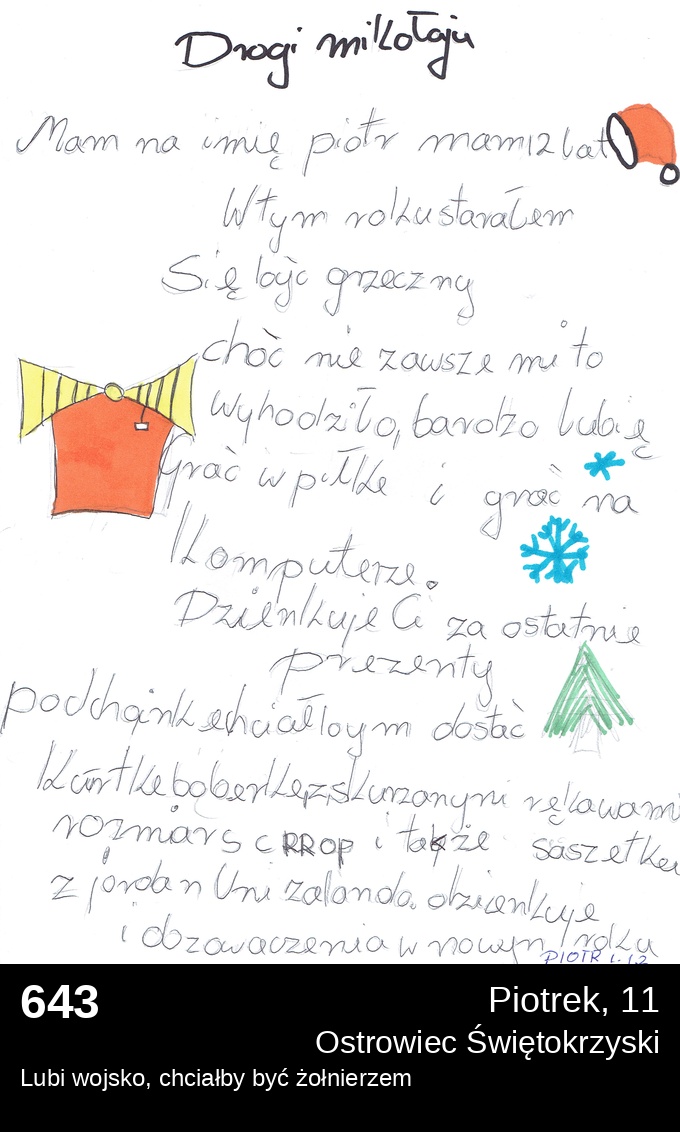 Drogi mikołaju
Mam na imię piotr mam 12 lat
W tym roku starałem
Się być grzeczny
choć nie zawsze mi to
wyhodziło, bardzo lubię
grać w piłke i grać na
komputerze.
Dzienkuje Ci za ostatnie
prezenty
pod choinke chciałbym dostać
kurtke boberke z skurzanymi rękawami
rozmiar S CRROP i także saszetke
z jordan Uni zalando. dzienkuje
i do zobaczenia w nowym roku
PIOTR L. 12
643
Piotrek, 11
Ostrowiec Świętokrzyski
Lubi wojsko, chciałby być żołnierzem